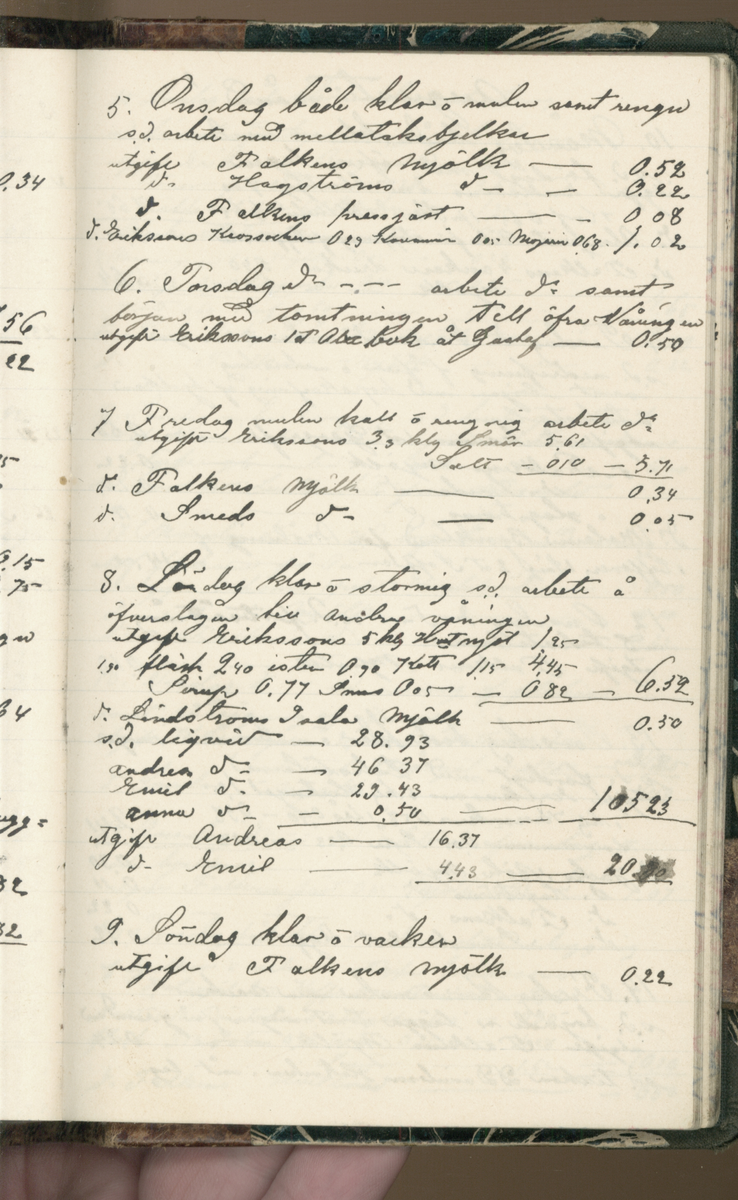 5. Onsdag både klar o mulen samt rengn
s.d. arbete med mellataksbjelkar
utgift Falkens Mjölk — 0.52
d:o Hagströms d:o — 0.22
d:o Falkens pressjäst — 0 08
d. Erikssons 0 29 0 05 068. 1.02
6. Torsdag d:o - . - - arbete d:o samt
början med tomtningen till öfra Våningen
utgift Erikssons 1 st Abc bok åt Gustaf — 0.50
7 Fredag mulen kall o rengnig arbete d:o
utgift Erikssons 3.3 klg Smör 5.61
Salt - 010 — 5.71
d:o Falkens Mjölk — 0.34
d:o Smeds d:o — 0.05
8. Lördag klar o stormig s.d. arbete å
öfverslagen till andra våningen
utgift Erikssons 5 klg 1.25
1.90 fläsk 2 40 ister 0.90 Kött 1,15 4.45
Sirup 0.77 Snus 0 05 — 0 82 — 6.52
d:o Lindströms Mjölk — 0.50
s.d. liqvid — 28.93
andrea d:o — 46 37
Emil d:o — 29.43
anna d:o — 0.50 — 10523
utgift Andreas — 16.37
d:o Emil — 4.43 — 20
9. Söndag klar o vacker
utgift Falkens Mjölk — 0.22
0.34
56
22
6.15
75
32
32